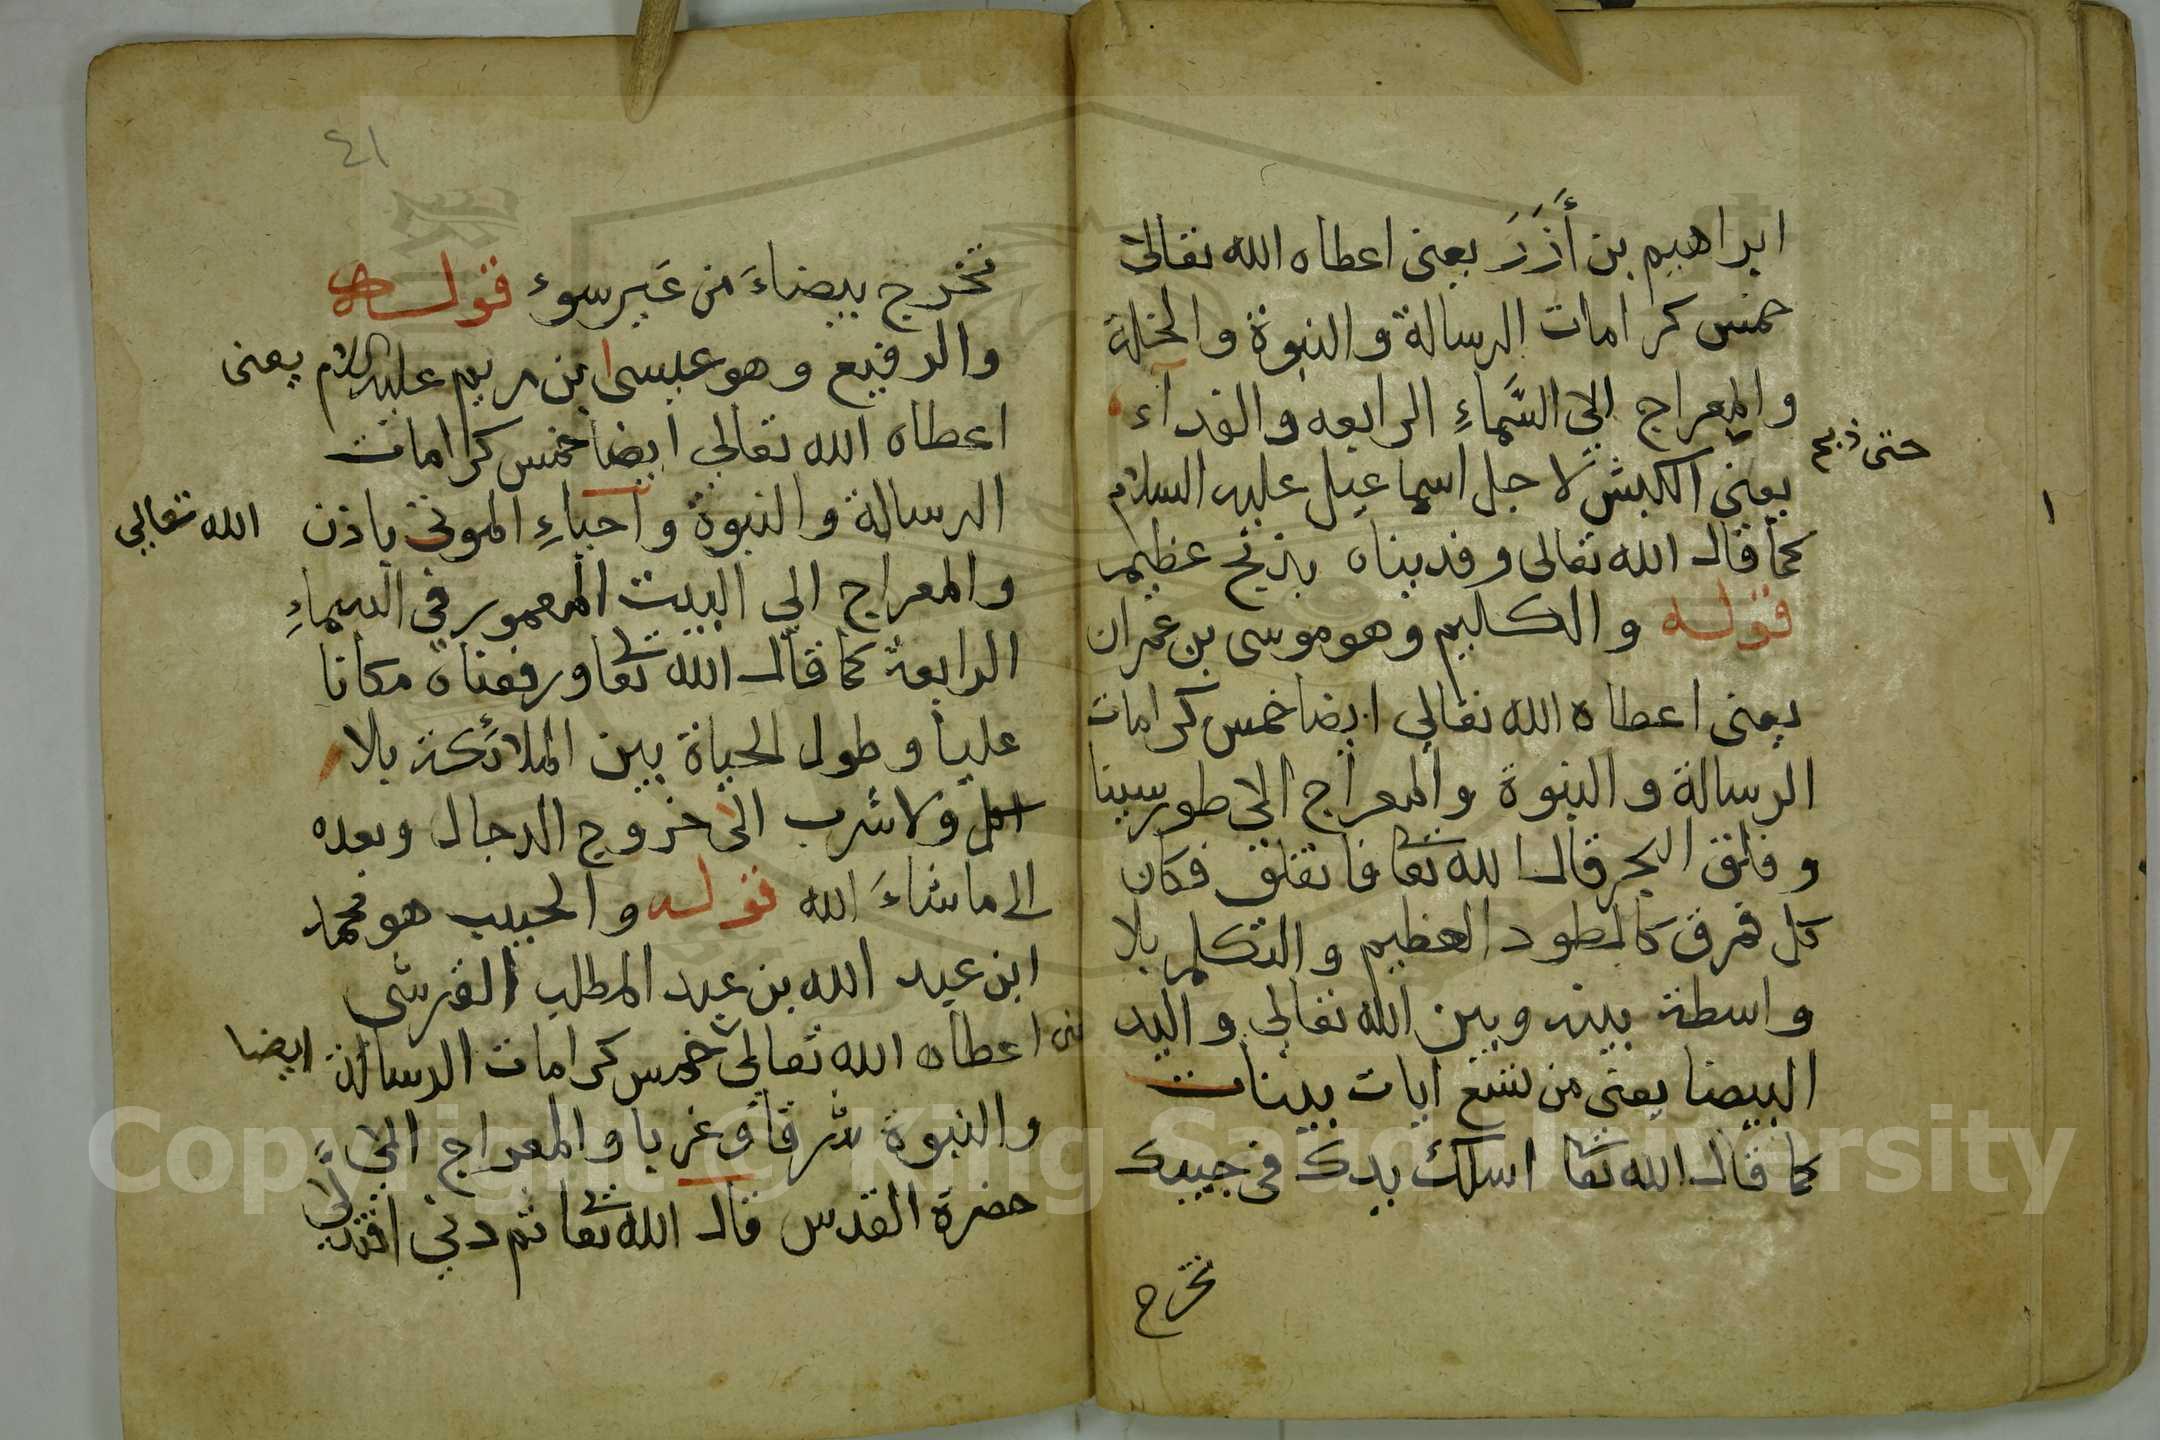 ابراهيم بن أَزَرَ يعنى اعطاه الله تعالىٰ
خمس كرامات الرسالة والنبوة والخلة
والمعراج الى السَّماءِ الرابعه والفدآء
حتى ذبح
يعنى الكبش لاجل اسماعيل عليه السلام
كما قال الله تعالى وفديناه بذبح عظيم
قوله والكليم وهو موسى بن عمران
يعنى اعطاه الله تعالي ايضا خمس كرامات
الرسالة والنبوة والمعراج الي طورسينا
وفلق البحر قال الله تعا فانفلق فكان
كل فرق كالطود العظيم والتكلم بلا
واسطة بينه وبين الله تعالي واليد
البيضا يعنى من تسع ايات بينات
كما قال الله تعا اسلك يدك في جيبك
تخرج
٤١
تخرج بيضاءَ من غَير سوء قوله
والرفيع وهو عيسى ابن مريم عليه السلام يعنى
اعطاه الله تعالي ايضا خمس كرامات
الرسالة والنبوة واحياءِ الموتى باذن الله تعالي
والمعراج الي البيت المعمور في السماءِ
الرابعة كما قال الله تعا ورفعناه مكانا
عليا وطول الحياة بين الملائكة بلا
اكل ولا شرب الى خروج الدجال وبعده
الى ماشاءَ الله قوله والحبيب هو محمد
ابن عبد الله بن عبد المطلب القرشى
اعطاه الله تعالي خمس كرامات الرسالة ايضا
والنبوة شرقا وغربا والمعراج الي
حضرة القدس قال الله تعا ثم دني فتدلَّى
Copyright © King Saud University